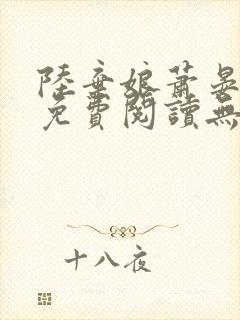 陸棄娘蕭晏
免費閱讀無
十八夜